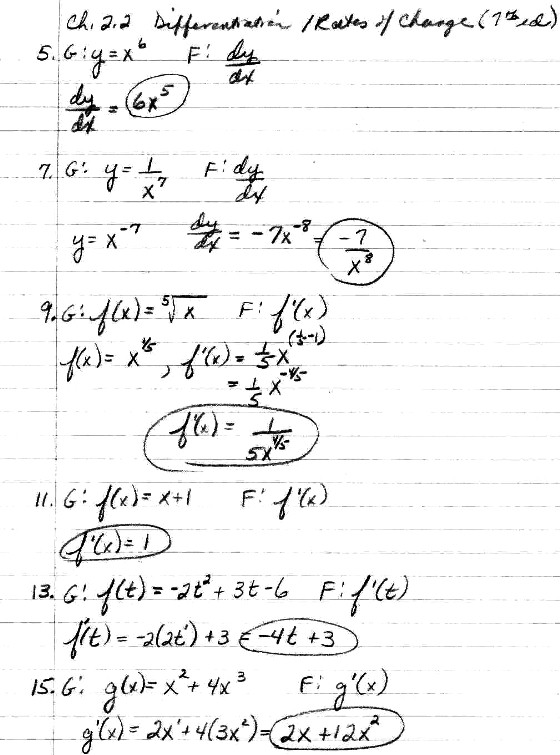 Ch. 2.2 Differentiation / Rates of Change (7th ed)
5. G: y = x⁶ F: dy/dx
dy/dx = 6x⁵
7. G: y = 1/x⁷ F: dy/dx
y = x⁻⁷ dy/dx = -7x⁻⁸ = -7/x⁸
9. G: f(x) = ⁵√x F: f'(x)
f(x) = x^(1/5), f'(x) = 1/5 x^(1/5-1)
= 1/5 x^(-4/5)
f'(x) = 1/(5x^(4/5))
11. G: f(x) = x+1 F: f'(x)
f'(x) = 1
13. G: f(t) = -2t² + 3t - 6 F: f'(t)
f'(t) = -2(2t') + 3 = -4t + 3
15. G: g(x) = x² + 4x³ F: g'(x)
g'(x) = 2x' + 4(3x²) = 2x + 12x²